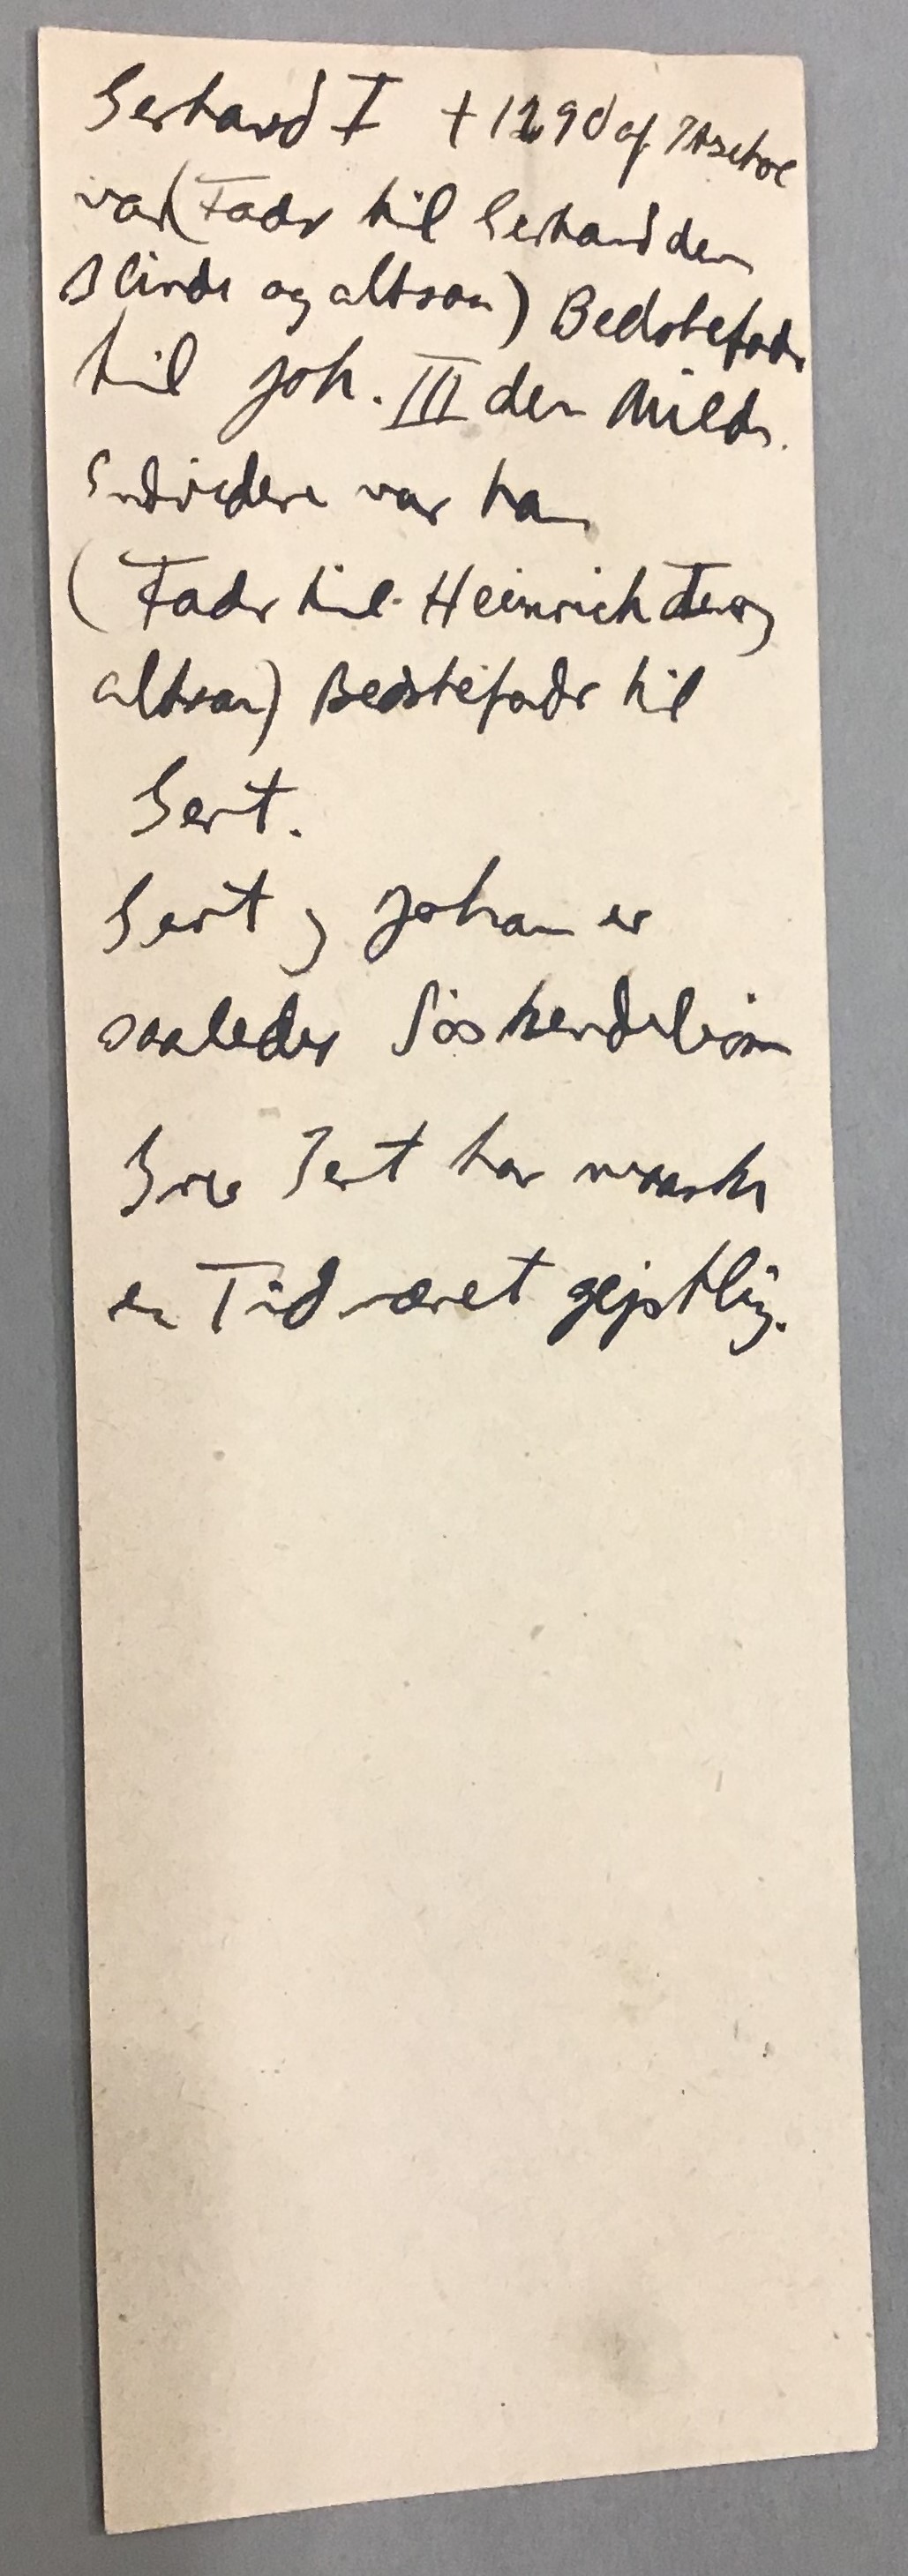 Gerhard I † 1290 af Itzehoe
var (Fader til Gerhard den
Blinde og altsaa) Bedstefader
til Joh. III den Milde.
Endvidere var han
(Fader til Heinrich I og
altsaa) Bedstefader til
Gert.
Gert og Johan er
saaledes Söskendebörn
Grev Gert har maaske
en Tid været gejstlig.